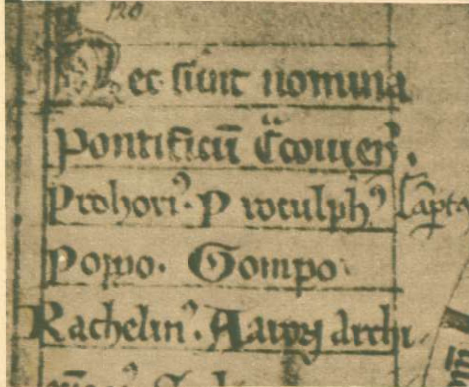 Hec sunt nomina
Pontificū Cͣcouieñ.
Prohori⁹. Proculph⁹ Lāpt⁹
Poppo. Gompo
Rachelin⁹. Aaron archi